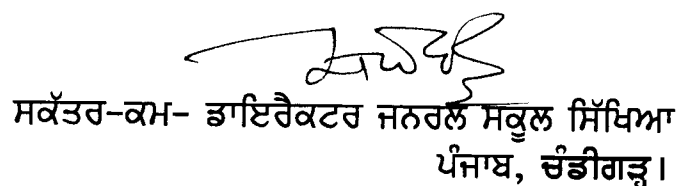 ਸਕੱਤਰ-ਕਮ- ਡਾਇਰੈਕਟਰ ਜਨਰਲ ਸਕੂਲ ਸਿੱਖਿਆ
ਪੰਜਾਬ, ਚੰਡੀਗੜ੍ਹ।